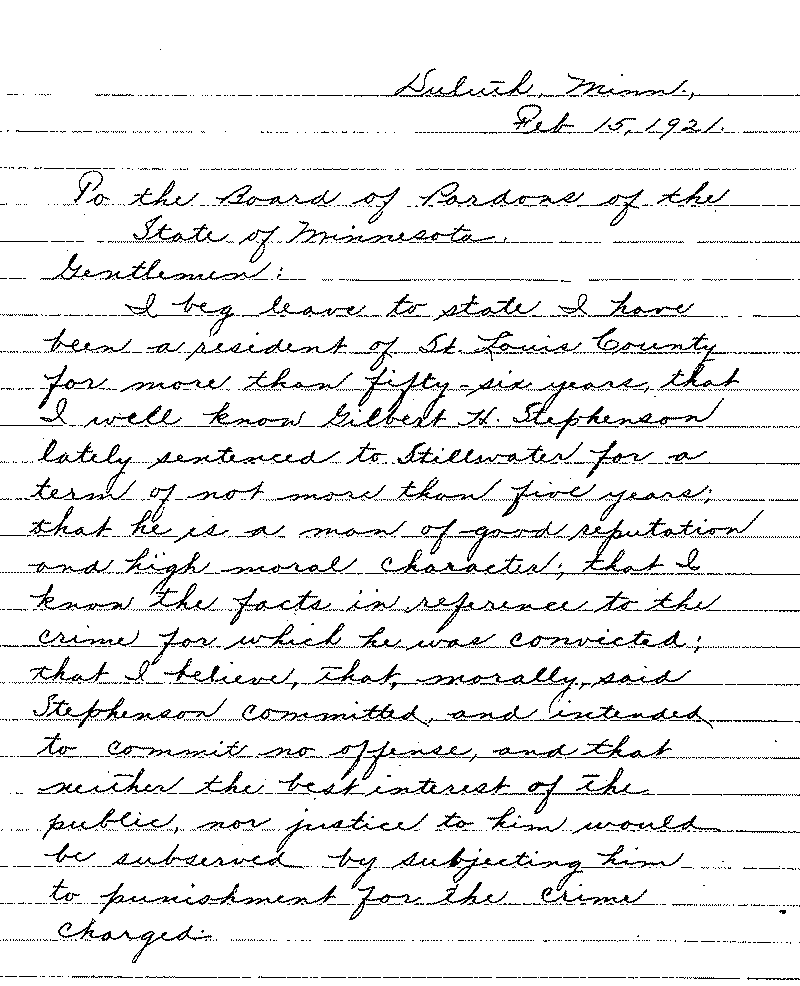 Duluth, Minn.,
Feb 15, 1921.
To the Board of Pardons of the
State of Minnesota.
Gentlemen:
I beg leave to state I have
been a resident of St. Louis County
for more than fifty-six years, that
I well know Gilbert H. Stephenson
lately sentenced to Stillwater for a
term of not more than five years;
that he is a man of good reputation
and high moral character; that I
know the facts in reference to the
crime for which he was convicted;
that I believe, that, morally, said
Stephenson committed, and intended
to commit no offense, and that
neither the best interest of the
public, nor justice to him would
be subserved by subjecting him
to punishment for the crime
charged.